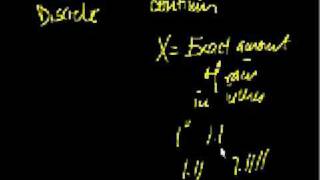 Discrete
X = Exact amount
of rain
in inches
1" 1.1
1.11 1.1111